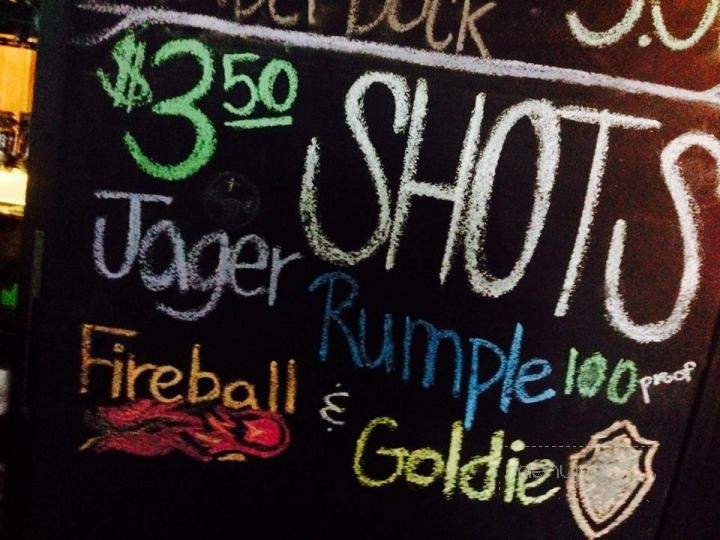 $3.50 SHOTS
Jager
Rumple 100 proof
Fireball
&
Goldie